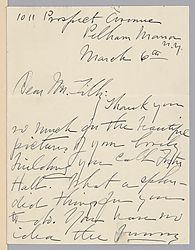 1011 Prospect Avenue
Pelham Manor
N.Y.
March 6th
Dear Mr. Filly:
Thank you
so much for the beautiful
pictures of your lovely
building you call
Hall. What a splen-
did thing for you
to do. You have no
idea the